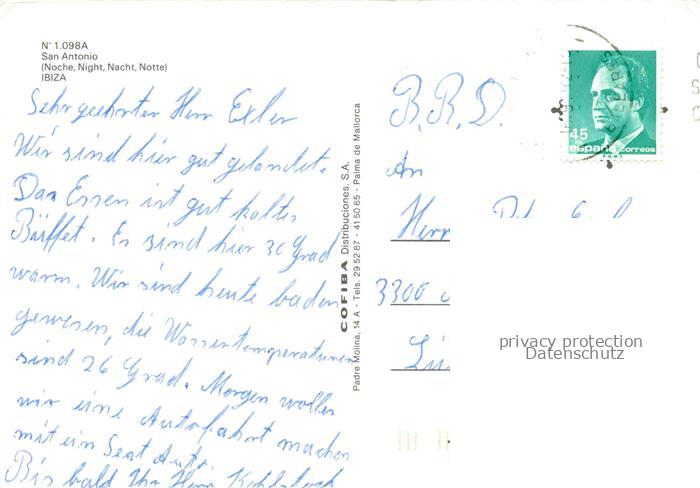 N° 1.098A
San Antonio
(Noche, Night, Nacht, Notte)
IBIZA
Sehr geehrter Herr Exler
Wir sind hier gut gelandet.
Das Essen ist gut kaltes
Büffet. Es sind hier 30 Grad
warm. Wir sind heute baden
gewesen, die Wassertemperaturen
sind 26 Grad. Morgen wollen
wir eine Autofahrt machen
mit ein Seat Auto.
Bis bald Ihr Herr
COFIBA Distribuciones, S.A.
Padre Molina, 14 A - Tels. 29 52 87 - 41 50 65 - Palma de Mallorca
45
españa correos
F.N.M.T.
B.R.D.
An
Herr
3300
privacy protection
Datenschutz